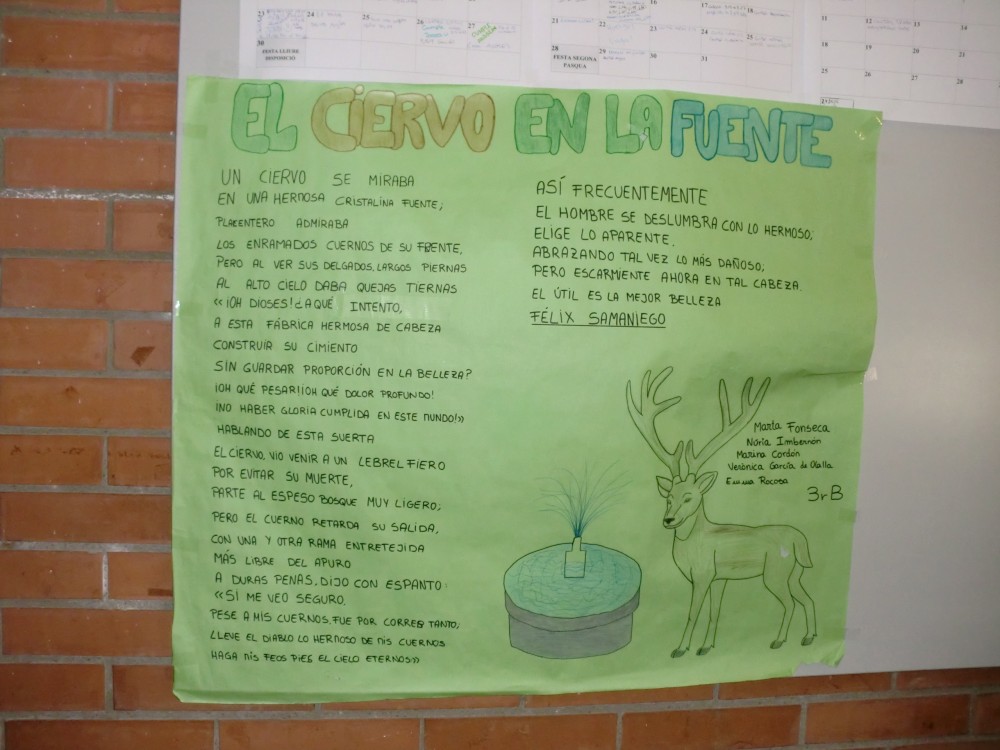 23
24
26
27
30
FESTA LLIURE
DISPOSICIÓ
16
17
18
21
22
23
24
25
28
29
30
31
FESTA SEGONA
PASQUA
11
12
13
14
18
19
20
21
25
26
27
28
EL CIERVO EN LA FUENTE
UN CIERVO SE MIRABA
EN UNA HERMOSA CRISTALINA FUENTE;
PLACENTERO ADMIRABA
LOS ENRAMADOS CUERNOS DE SU FRENTE,
PERO AL VER SUS DELGADOS, LARGOS PIERNAS
AL ALTO CIELO DABA QUEJAS TIERNAS
«¡OH DIOSES! ¿A QUÉ INTENTO,
A ESTA FÁBRICA HERMOSA DE CABEZA
CONSTRUIR SU CIMIENTO
SIN GUARDAR PROPORCIÓN EN LA BELLEZA?
¡OH QUÉ PESAR! ¡OH QUÉ DOLOR PROFUNDO!
¡NO HABER GLORIA CUMPLIDA EN ESTE MUNDO!»
HABLANDO DE ESTA SUERTA
EL CIERVO, VIO VENIR A UN LEBREL FIERO
POR EVITAR SU MUERTE,
PARTE AL ESPESO BOSQUE MUY LIGERO;
PERO EL CUERNO RETARDA SU SALIDA,
CON UNA Y OTRA RAMA ENTRETEJIDA
MÁS LIBRE DEL APURO
A DURAS PENAS, DIJO CON ESPANTO:
«SI ME VEO SEGURO,
PESE A MIS CUERNOS, FUE POR CORRER TANTO;
LLEVE EL DIABLO LO HERMOSO DE MIS CUERNOS
HAGA MIS FEOS PIES EL CIELO ETERNOS»
ASÍ FRECUENTEMENTE
EL HOMBRE SE DESLUMBRA CON LO HERMOSO;
ELIGE LO APARENTE,
ABRAZANDO TAL VEZ LO MÁS DAÑOSO;
PERO ESCARMIENTE AHORA EN TAL CABEZA.
EL ÚTIL ES LA MEJOR BELLEZA
FÉLIX SAMANIEGO
Marta Fonseca
Núria Imbernón
Marina Cordón
Verònica García de Olalla
Emma Rocosa
3r B